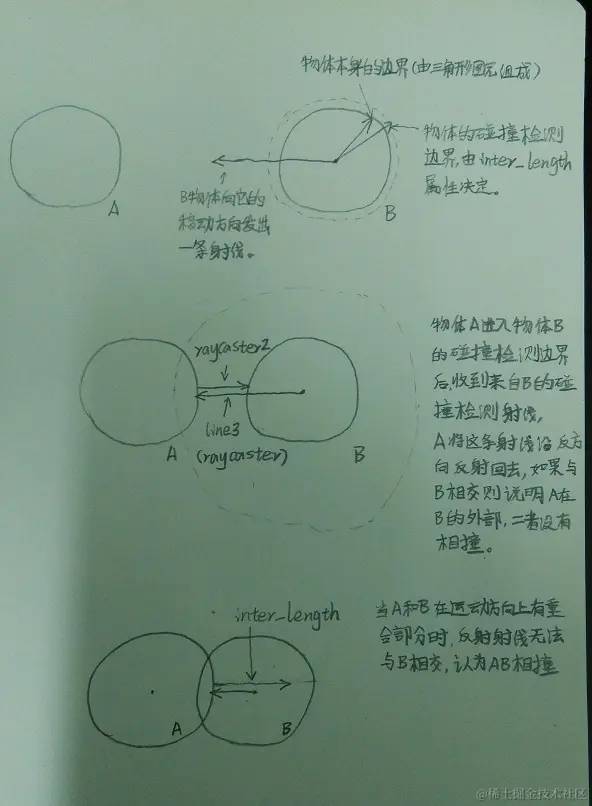 物体本身的边界(由三角形图元组成)
物体的碰撞检测
边界,由inter_length
属性决定。
A
B
B物体向它的
移动方向发出
一条射线。
raycaster2
line3
(raycaster)
A
B
物体A进入物体B
的碰撞检测边界
后,收到来自B的碰
撞检测射线,
A将这条射线沿反方
向反射回去,如果与
B相交则说明A在
B的外部,二者没有
相撞。
inter_length
A
B
当A和B在运动方向上有重
合部分时,反射射线无法
与B相交,认为AB相撞
@稀土掘金技术社区